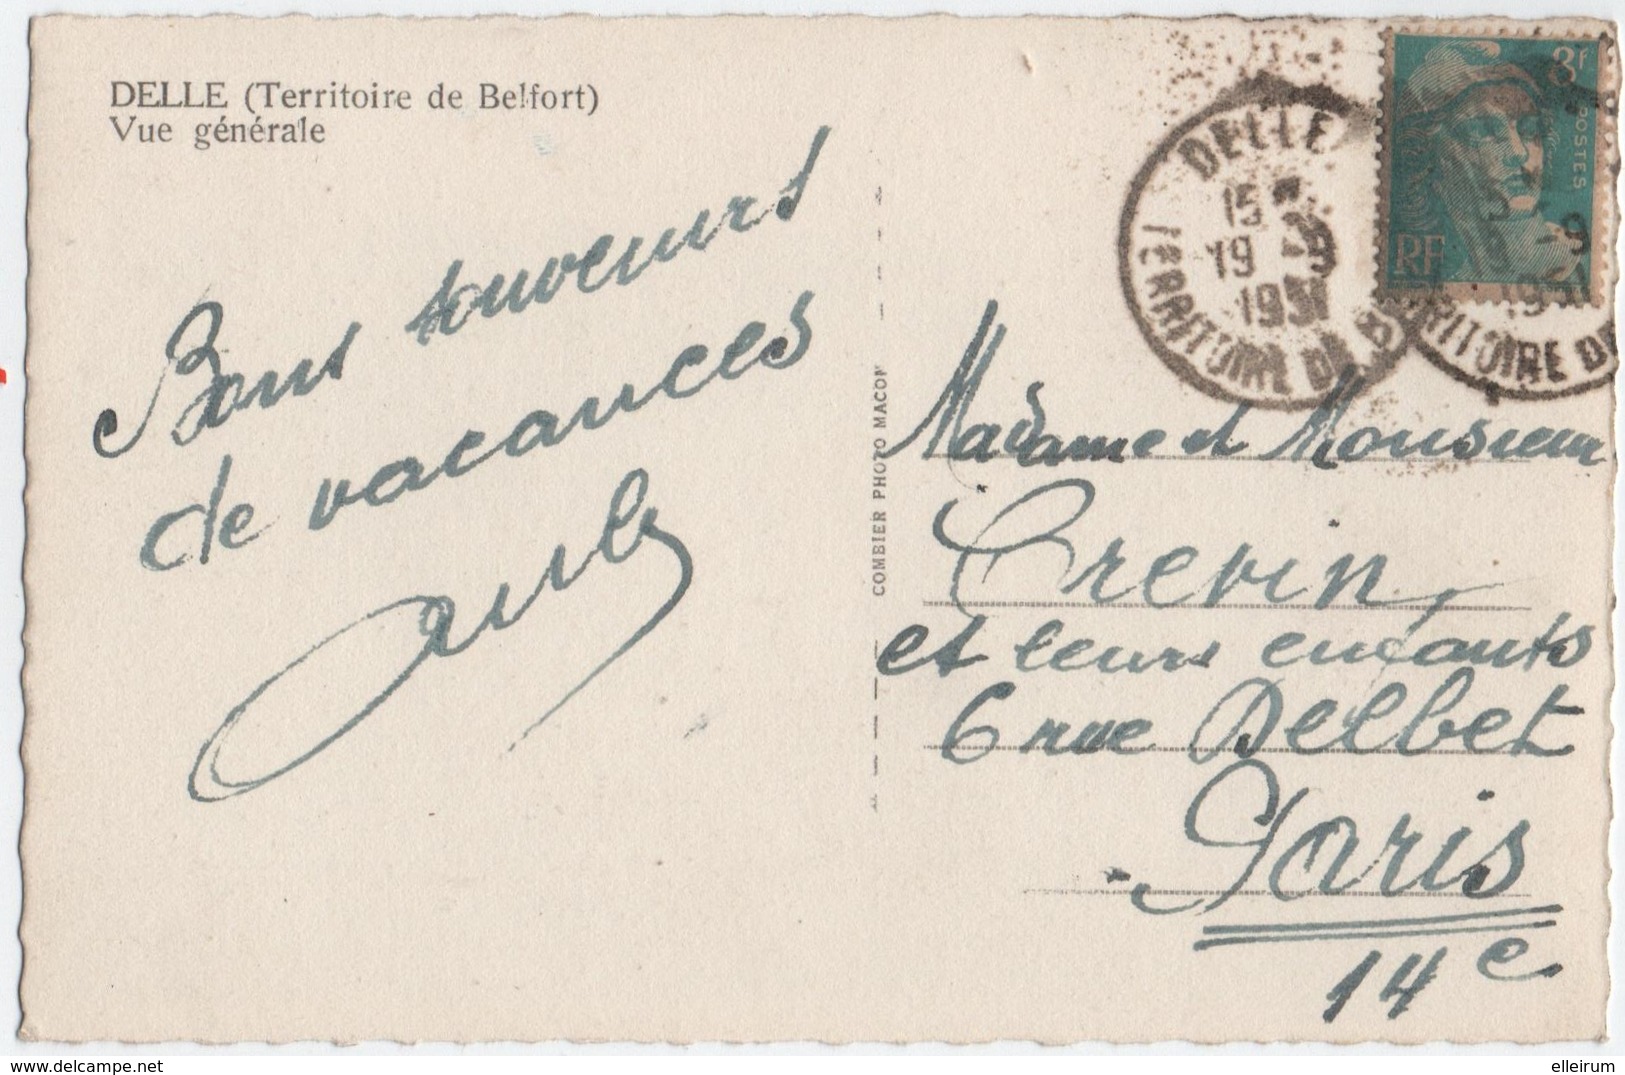 DELLE (Territoire de Belfort)
Vue générale
Bons souvenirs
de vacances
COMBIER PHOTO MACON
DELLE
15
19 -9
1951
TERRITOIRE DE B
3F
POSTES
RF
19 -9
1951
RITOIRE DE
Madame et Monsieur
Crevin
et leurs enfants
6 rue Delbet
Paris
14e
delcampe.net
elleirum